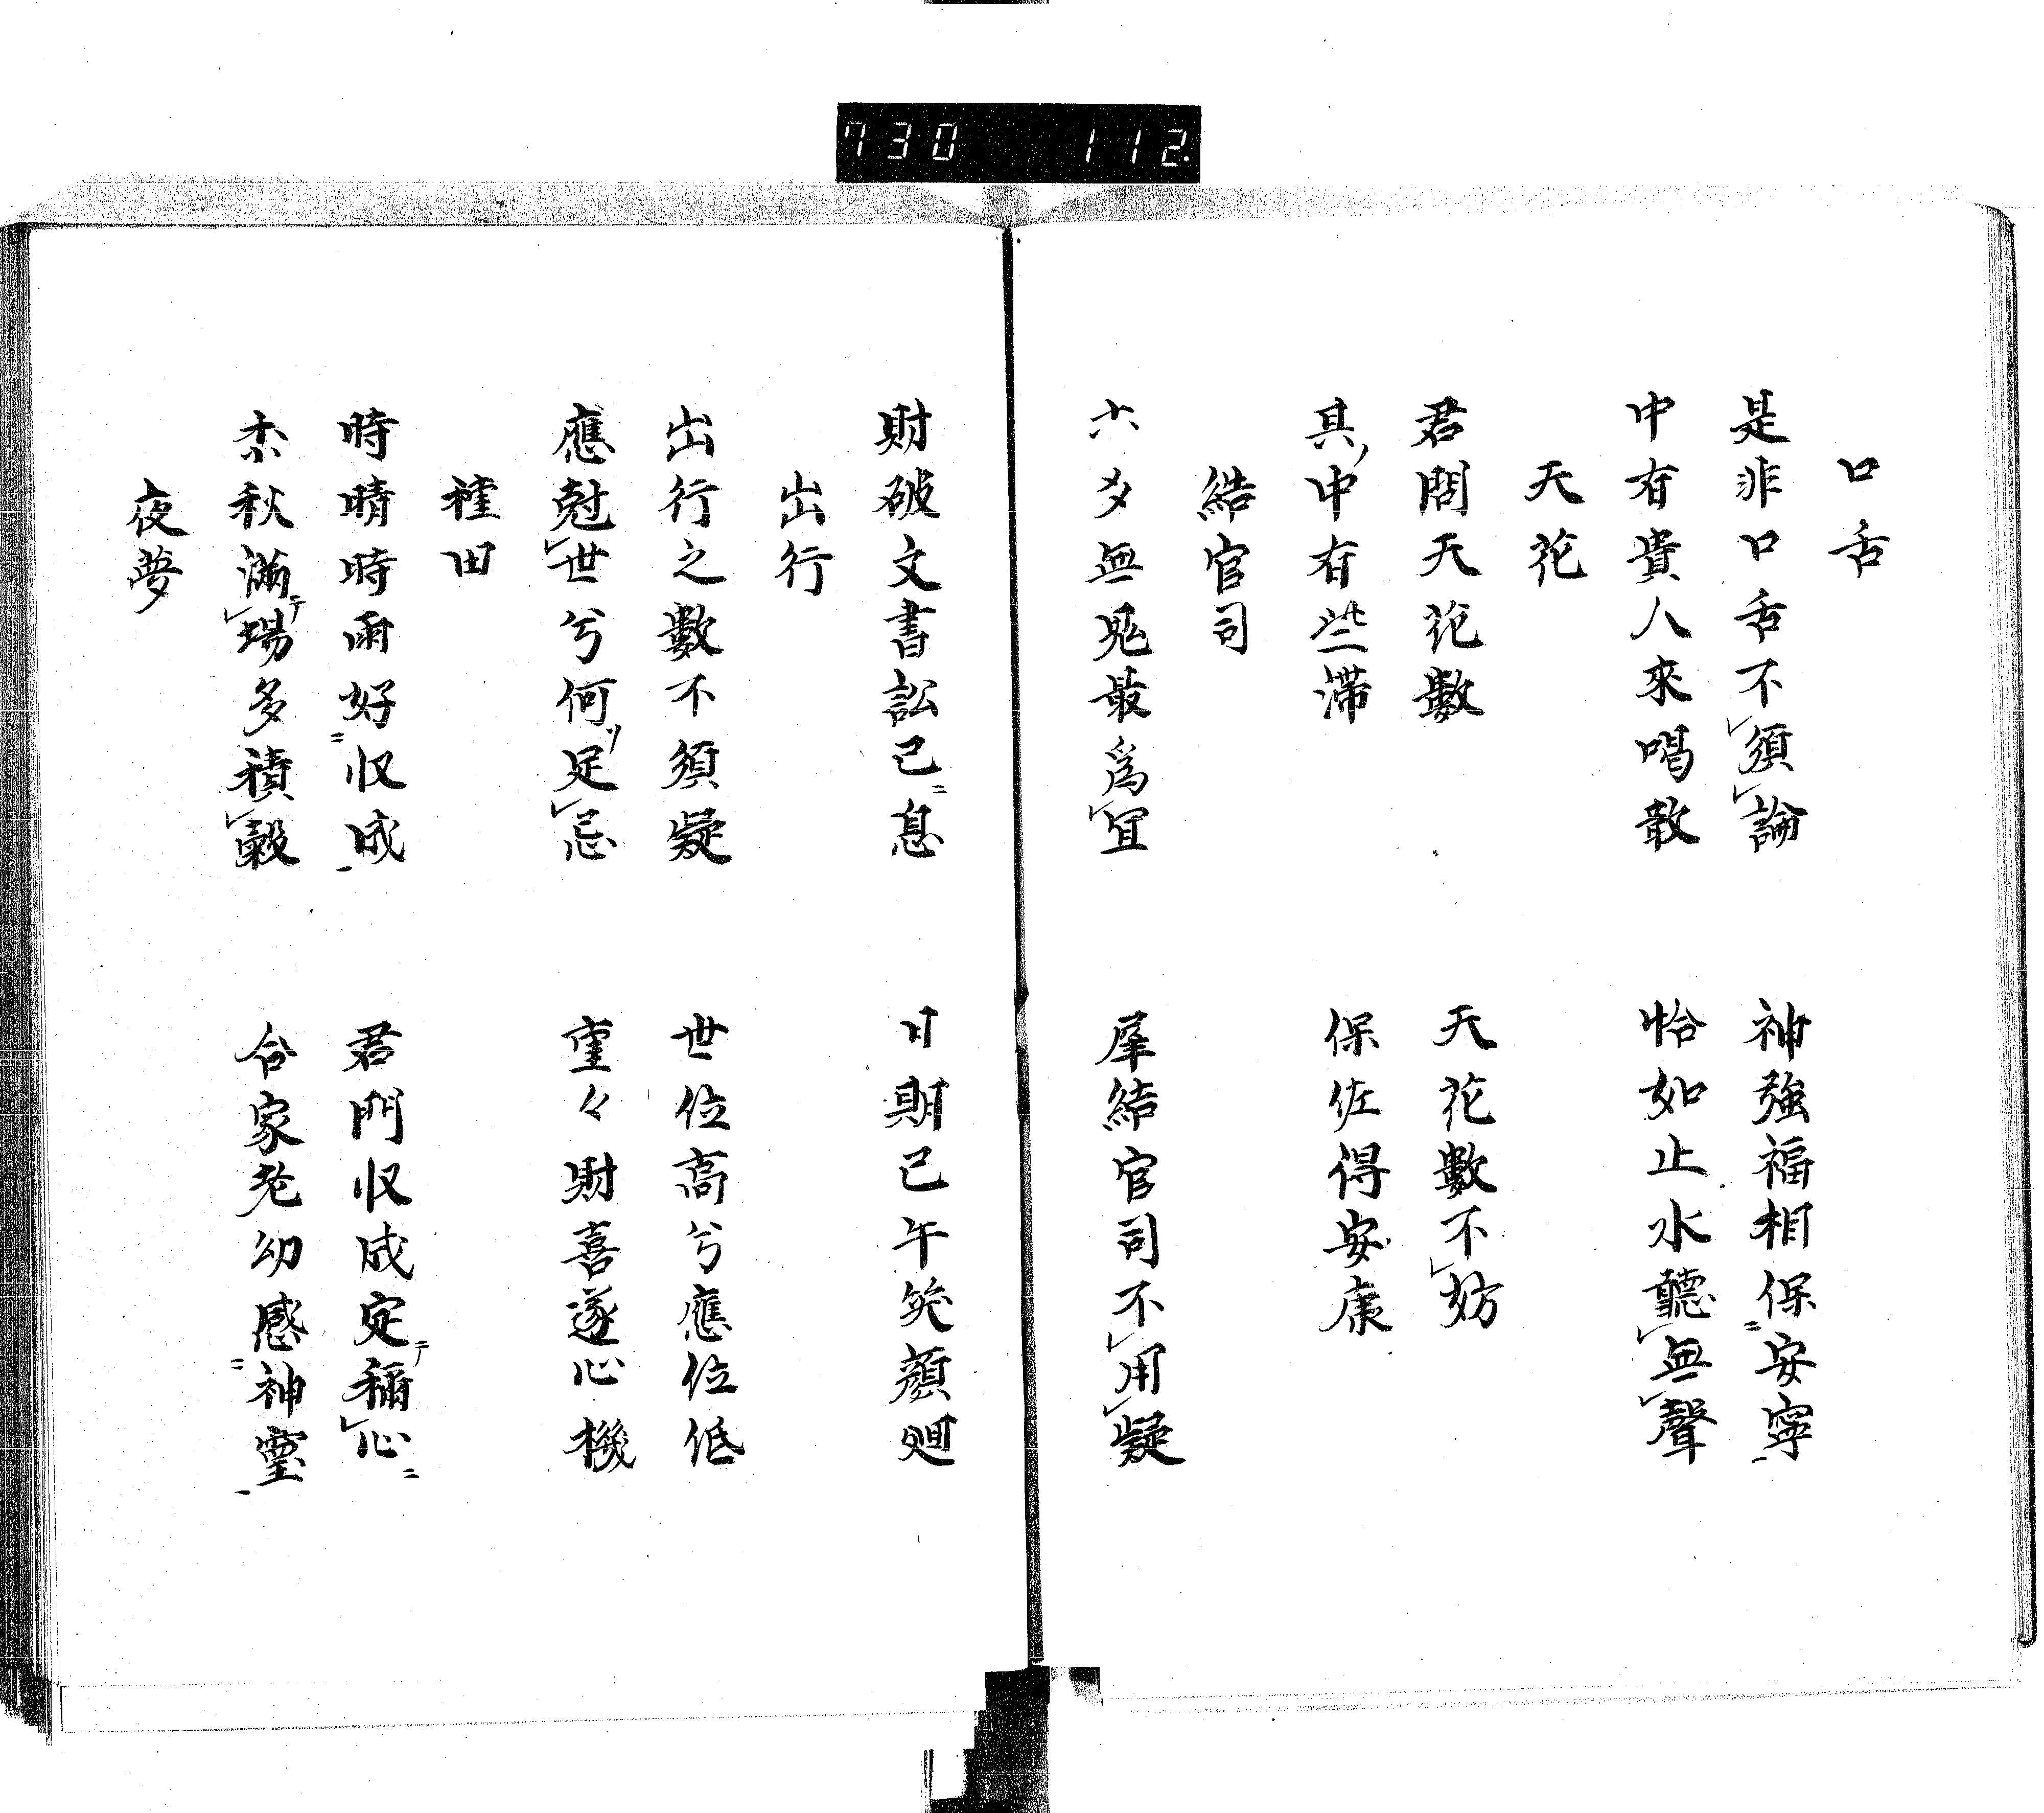 730 112
口舌
是非口舌不須論 神強福相保安寧
中有貴人來喝散 恰如止水聽無聲
天花
君問天花數 天花數不妨
其中有些滯 保佐得安康
結官司
六爻無鬼最爲宜 結官司不用疑
財破文書訟已息 日期已午笑顏廻
出行
出行之數不須疑 世位高兮應位低
應尅世兮何足忌 重々財喜遂心機
種田
時晴時雨好収成 君門収成定稱心
秋滿場多積穀 合家老幼感神靈
夜夢